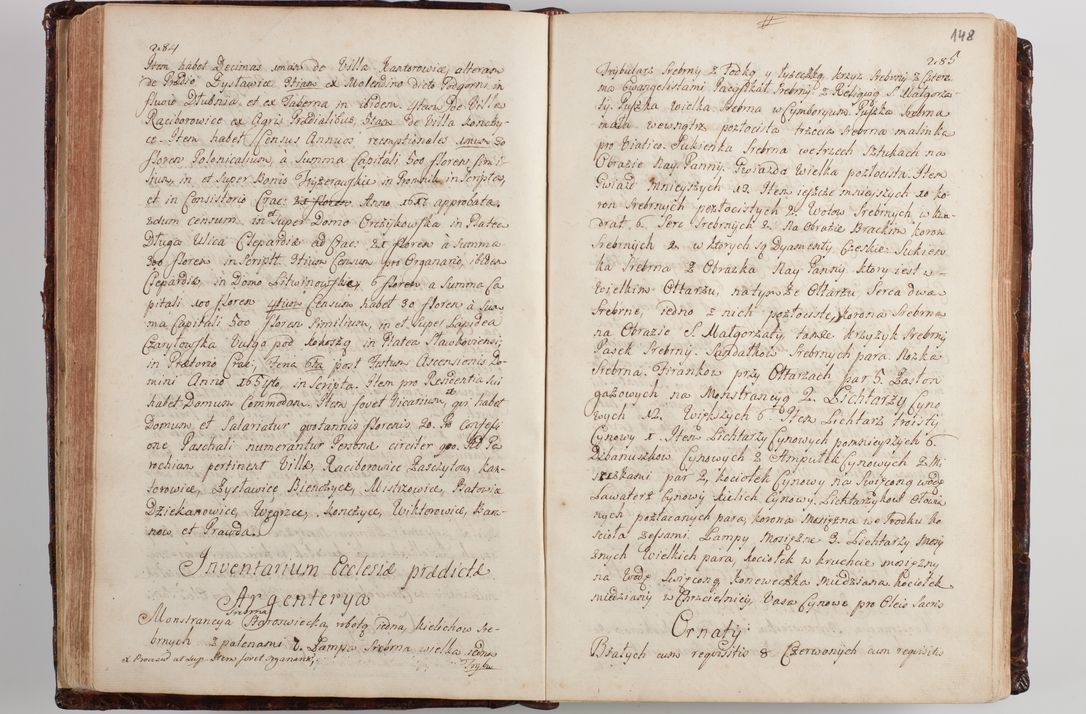 284
Item habet Decimas unam de Villa Kantorowice, alteram
de Prædio Zysławice Etiam ex Molendino dicto Podgorni in
fluvio Dłubnia, et ex Taberna in ibidem. Etiam de Villa
Raciborowice ex Agris Prædialibus, Etiam de Villa Konczy-
ce. Item habet Census Annuos reemptionales unum 30
floren Polonicalium, a Summa Capitali 500 floren simi
lium, in et super Bonis in Promnik inScriptæ,
et in Consistorio Crac: Anno 1617 approbata.
2dum censum in et Super Domo Crezykowska in Platea
Długa Ulica Clepardiæ ad Crac: 21 floren à Summa
300 floren inScriptt. 3tium Censum pro Organario, ibidem
Clepardiæ, in Domo Litwinowska, 6 floren a Summa Ca
pitali 100 floren 4tum Censum habet 30 floren à Sum
ma Capitali 500 floren similium, in et Super Lapidea
Czarylowska Vulgo pod in Platea Sławkoviensi,
in Prætorio Crac: Feria 6ta post Festum Ascensionis Do
mini Anno 165 inscripta. Item pro Residentia sui
habet Domum Commodam. Item fovet Vicarium, qui habet
Domum et Salariatur quotannis florenis 20. Pro Confessi
one Paschali numerantur Personæ circiter 900. Ad Pa
rochiam pertinent Villæ, Raciborowice Zasczytow, Kan-
torowice, Zysławice Bienczyce, Mistrzowice, Batowice
Dziekanowice, Węgrzce, Konczyce, Wiktorowice, Bar-
now et Prawda.
Inventarium Ecclesiæ prædictæ
Argenterya
Monstrancya Srebrna Staroswiecka, robotą iedna, Kielichow Sre-
brnych z patenami 7. Lampa Srebrna wielka iedna
Trybu
148
285
Trybularz Srebrny z Łodką y łyszeczką, krzyż Srebrny z cztere
ma Ewangelistami Pacyfikał Srebrny z Reliquią S. Małgorza-
ty. Puszka wielka Srebrna w Cymboryum Puszka Srebrna
mała wewnątrz pozłocista trzecia Srebrna malinka
pro Viatico. Sukienka Srebrna we trzech Sztukach na
Obrazie Nay: Panny. Gwiazda Wielka pozłocista. Item
Gwiazd mnieyszych 12. Item ieszcze mnieyszych 10 ko
ron Srebrnych pozłocistych 2. Wotow Srebrnych w kwa
drat 6. Serc Srebrnych 2. Na Obrazie Brackim koron
Srebrnych 2. w ktorych są Dyamenty Czeskie. Sukien
ka Srebrna z Obrazka Nay: Panny. ktory iest w-
Wielkim Ołtarzu, na tym że Ołtarzu Serca dwa
Srebrne, iedno z nich pozłociste, korona Srebrna
na Obrazie S. Małgorzaty, także krzyżyk Srebrny
Pasek Srebrny. Sandałkow Srebrnych para. Rozka
Srebrna. Firankow przy Ołtarzach par 5. Zasłon
gazowych na Monstrancyą 2. Lichtarzy Cyno
wych 12. Większych 6. Item Lichtarz troisty
Cynowy 1. Item Lichtarzy Cynowych pomnieyszych 6.
Dzbanuszkow Cynowych 2 Ampułek Cynowych z Mi
seczkami par 2, kociołek Cynowy na Swięconą wodę
Lawaterz Cynowy kielich Cynowy. Lichtarzykow Ołowia
nych pozłacanych para, korona Mosiężna we srodku Ko
scioła zessami. Lampy Mosiężne 3. Lichtarzy Mosię
żnych Wielkich para, kociołek w kruchcie mosiężny
na Wodę Swięconą koneweczka miedziana. kociołek
miedziany w Chrzcielnicy. Vasa Cynowe pro Oleis Sacris
Ornaty
Białych cum requisitis 8 Czerwonych cum requisitis